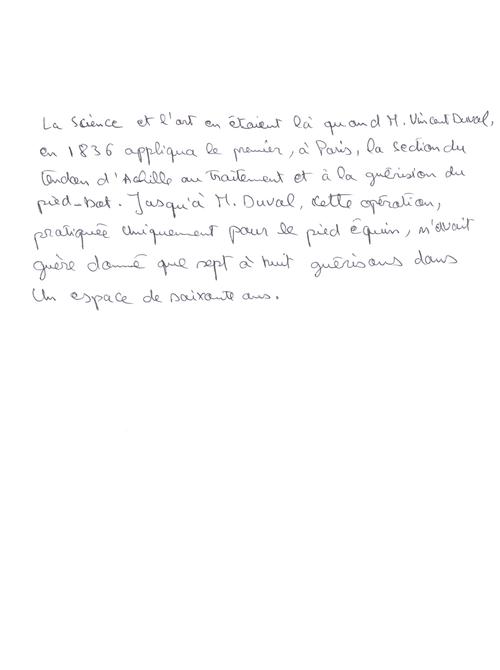 La Science et l'art en étaient là quand M. Vincent Duval,
en 1836 appliqua le premier, à Paris, la section du
tendon d'Achille au traitement et à la guérison du
pied-bot. Jusqu'à M. Duval, cette opération,
pratiquée uniquement pour le pied équin, n'avait
guère donné que sept à huit guérisons dans
un espace de soixante ans.